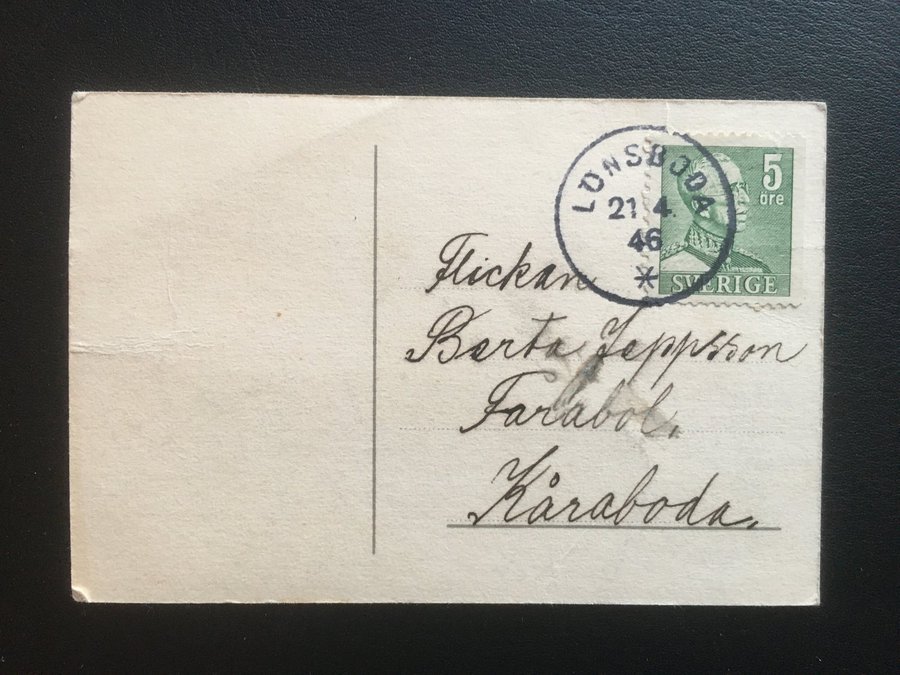 LÖNSBODA
21. 4.
46
5
öre
SVERIGE
Flickan
Berta Jeppsson
Farabol,
Kåraboda.